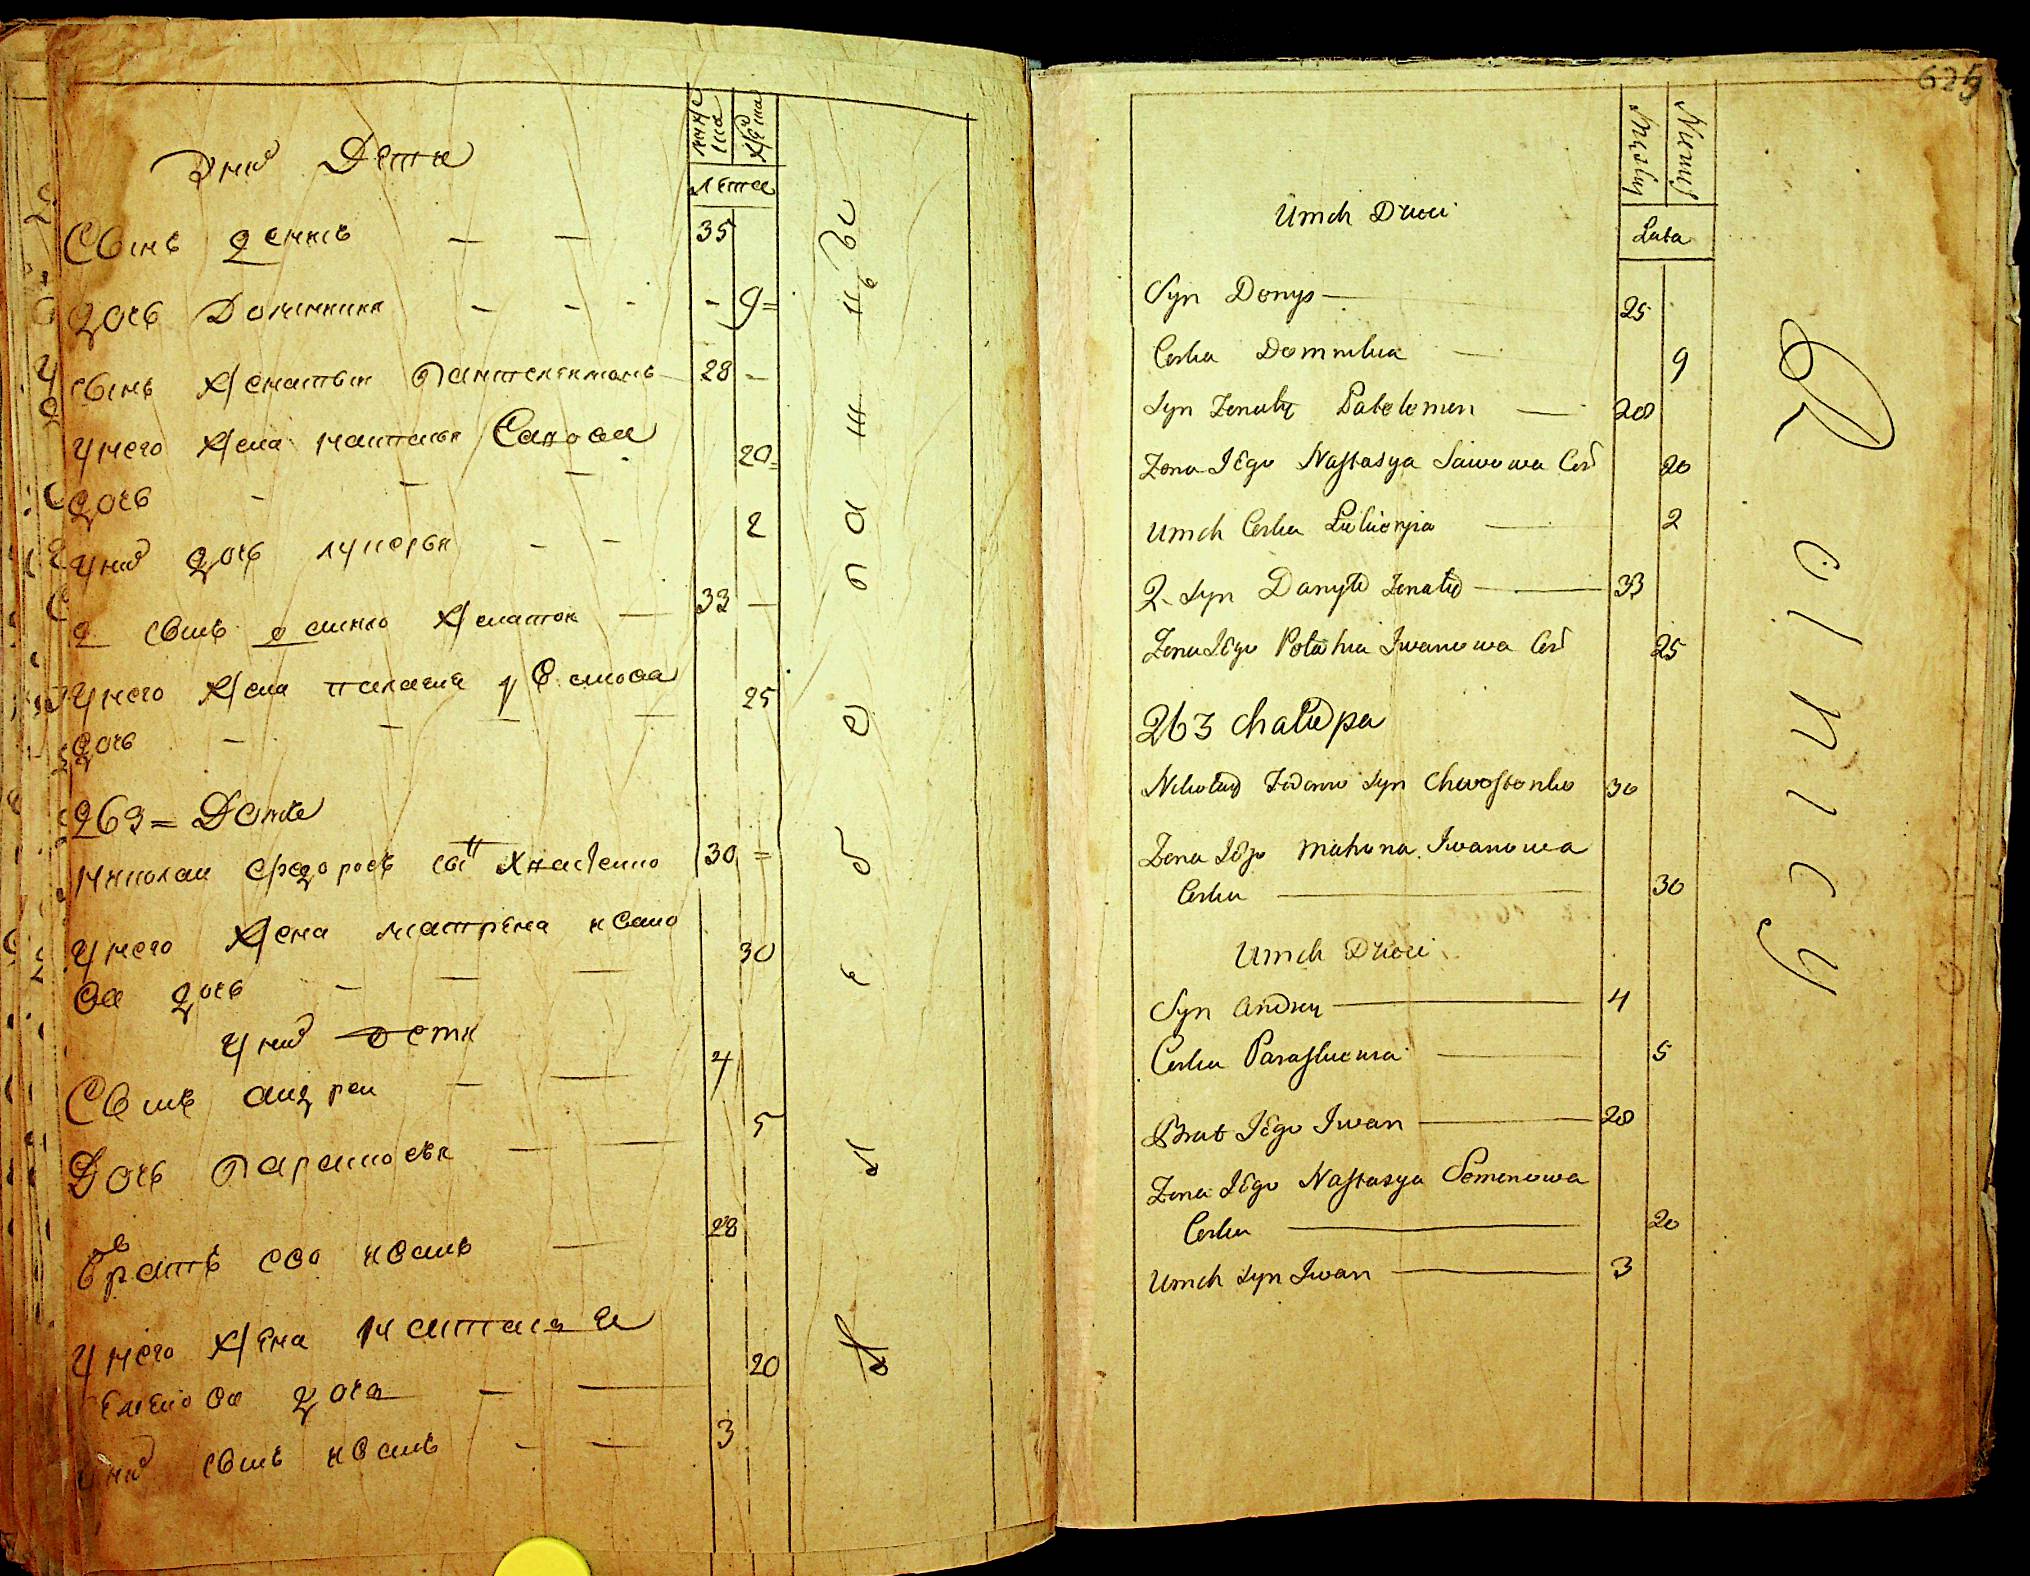 У них Дети
Сынъ Денисъ — — 35
дочь Домникия — — - — 9=
сынъ женатын Пантелеимонъ — 28 —
у него жена настасия Савова 20=
дочь — — —
у них дочь лукерья — — 2
2 сынъ данило женатои — 33 —
у него жена палагея Иванова 25
дочь — — — —
263 = Домъ
николаи федоровъ сынъ Хвастенко 30 =
у него жена матрена ивано 30
ва дочь — — —
у них дети
Сынъ андреи — — 4
Дочь параскевия — — 5
братъ ево иванъ — 28
у него жена настасия 20
семенова дочь — —
у них сынъ иванъ — — 3
мужеска
женска
лета
625
Męskiey
Niewiey
Lata
Umch Dzieci
Syn Denys — 25
Corka Domnikia — 9
Syn Zenaty Patelemon — 28
Zona Iego Nastasya Sawowa Cor 20
Umch Corka Lukierija — 2
2. Syn Danyło Zenaty — 33
Zona Iego Połahia Iwanowa Cor 25
263 Chałupa
Nikołay Fedorow Syn Chwostenko 30
Zona Iego Matrona Iwanowa
Corka — 30
Umch Dzieci
Syn Andrey — 4
Corka Paraskiewia — 5
Brat Iego Iwan — 28
Zona Iego Nastasya Semenowa
Corka — 20
Umch Syn Iwan — 3
Rolnicy